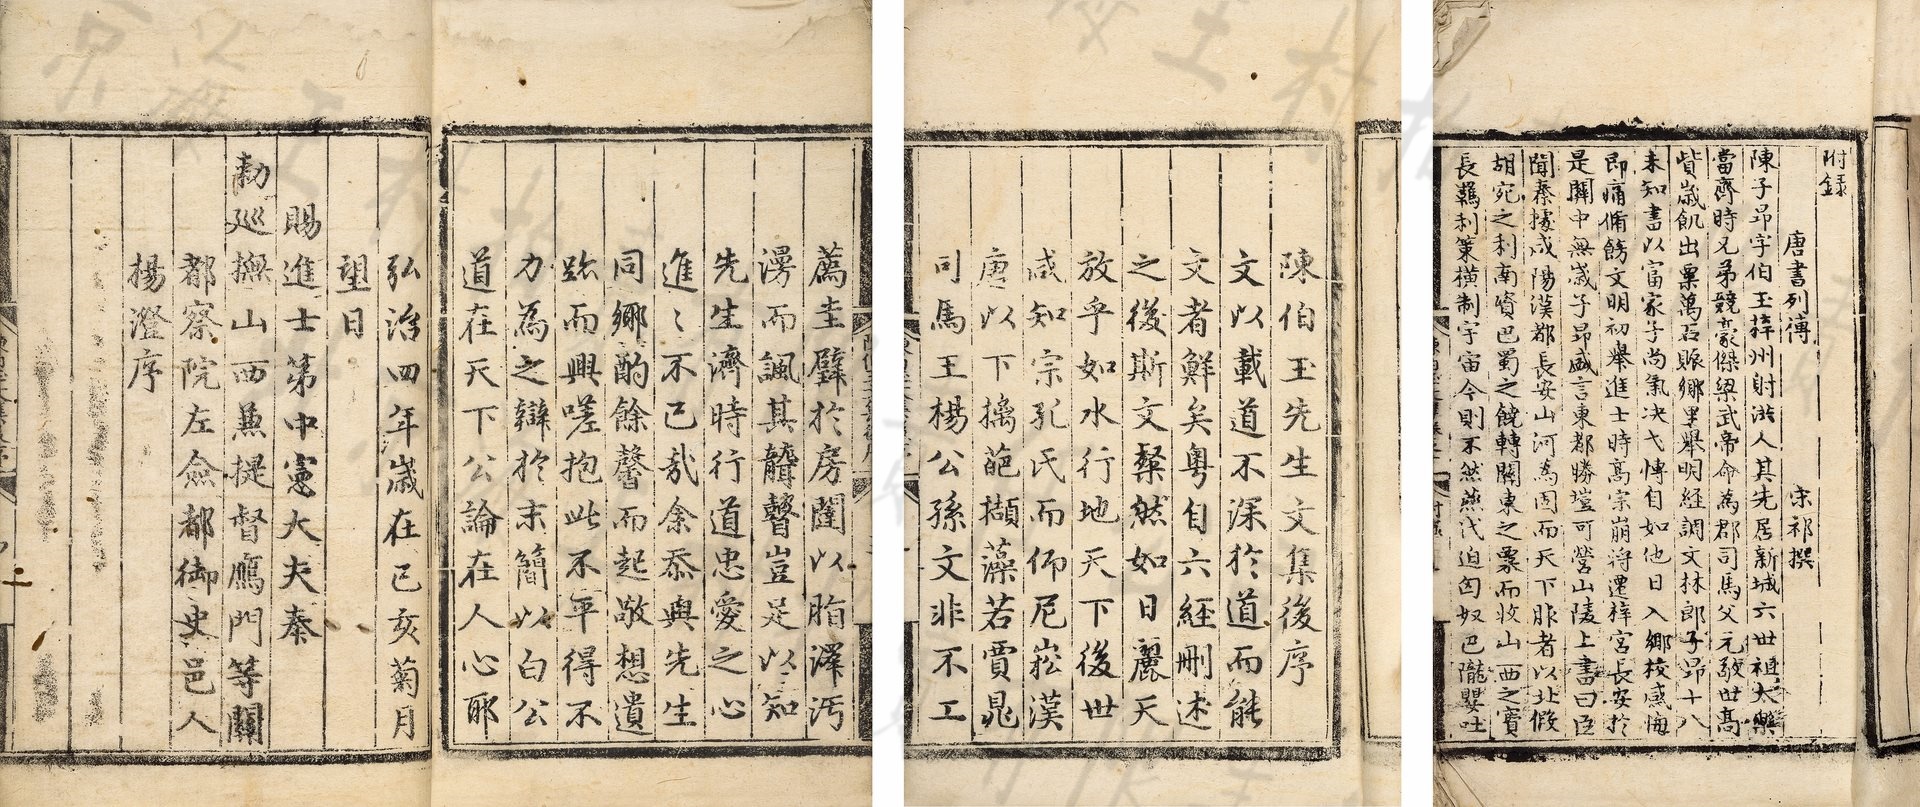 附錄
唐書列傳 宋祁撰
陳子昂字伯玉梓州射洪人其先居新城六世祖太樂
當齊時兄弟競豪傑梁武帝命為郡司馬父元敬世高
貲歲飢出粟萬石賑鄉里舉明經調文林郎子昂十八
未知書以富家子尚氣决弋博自如他日入鄉校感悔
即痛脩飭文明初舉進士時高宗崩將遷梓宮長安於
是關中無歲子昂盛言東都勝塏可營山陵上書曰臣
聞秦據咸陽漢都長安山河為固而天下服者以北假
胡宛之利南資巴蜀之饒轉關東之粟而收山西之寶
長羈利策橫制宇宙今則不然燕代迫匈奴巴隴嬰吐
陳伯玉先生文集後序
文以載道不深於道而能
文者鮮矣粵自六經刪述
之後斯文粲然如日麗天
放乎如水行地天下後世
咸知宗孔氏而仰尼崧漢
唐以下摛葩擷藻若賈晁
司馬王楊公孫文非不工
薦圭璧於房闥以脂澤汚
漫而諷其聾瞽豈足以知
先生濟時行道忠愛之心
進〻不已哉余忝與先生
同鄉酌餘馨而起敬想遺
跡而興嗟抱此不平得不
力為之辯於末簡以白公
道在天下公論在人心耶
弘治四年歲在己亥菊月
望日
賜進士第中憲大夫奉
勑巡撫山西兼提督鴈門等關
都察院左僉都御史邑人
楊澄序